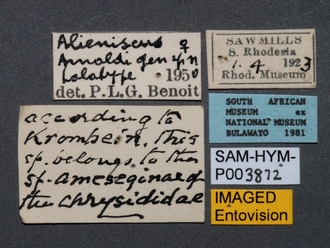 Alieniscus ♀
Arnoldi gen sp n
Holotype 1950
det. P.L.G. Benoit
SAWMILLS
S. Rhodesia
1. 4 1923
Rhod. Museum
SOUTH AFRICAN
MUSEUM ex
NATIONAL MUSEUM
BULAWAYO 1981
according to
Krombein, this
sp. belongs to the
sf. ameseginae of
the chrysididae
SAM-HYM-
P003872
IMAGED
Entovision